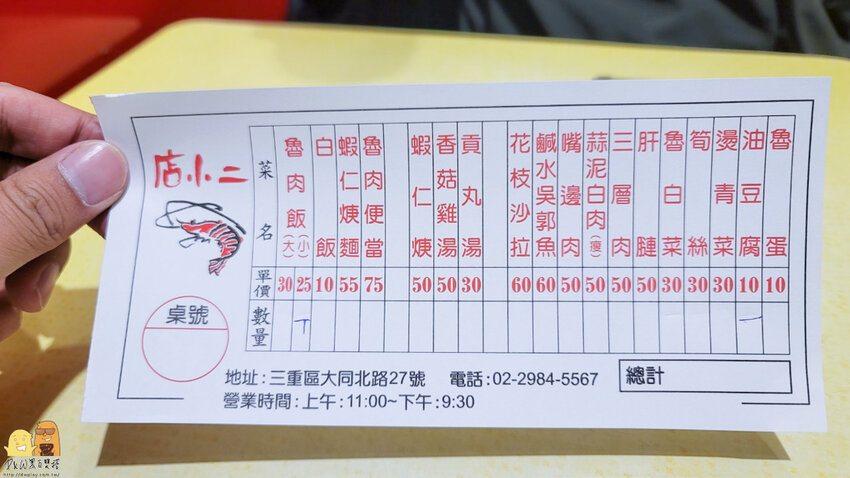 店小二
菜名
魯肉飯(大)(小)
白飯
蝦仁焿麵
魯肉便當
蝦仁焿
香菇雞湯
貢丸湯
花枝沙拉
鹹水吳郭魚
嘴邊肉
蒜泥白肉(瘦)
三層肉
肝腱
魯白菜
筍絲
燙青菜
油豆腐
魯蛋
單價 30 25 10 55 75 50 50 30 60 60 50 50 50 50 30 30 30 10 10
數量 T 一
桌號
地址:三重區大同北路27號 電話:02-2984-5567
營業時間:上午:11:00~下午:9:30
總計
http://dwplay.com.tw/